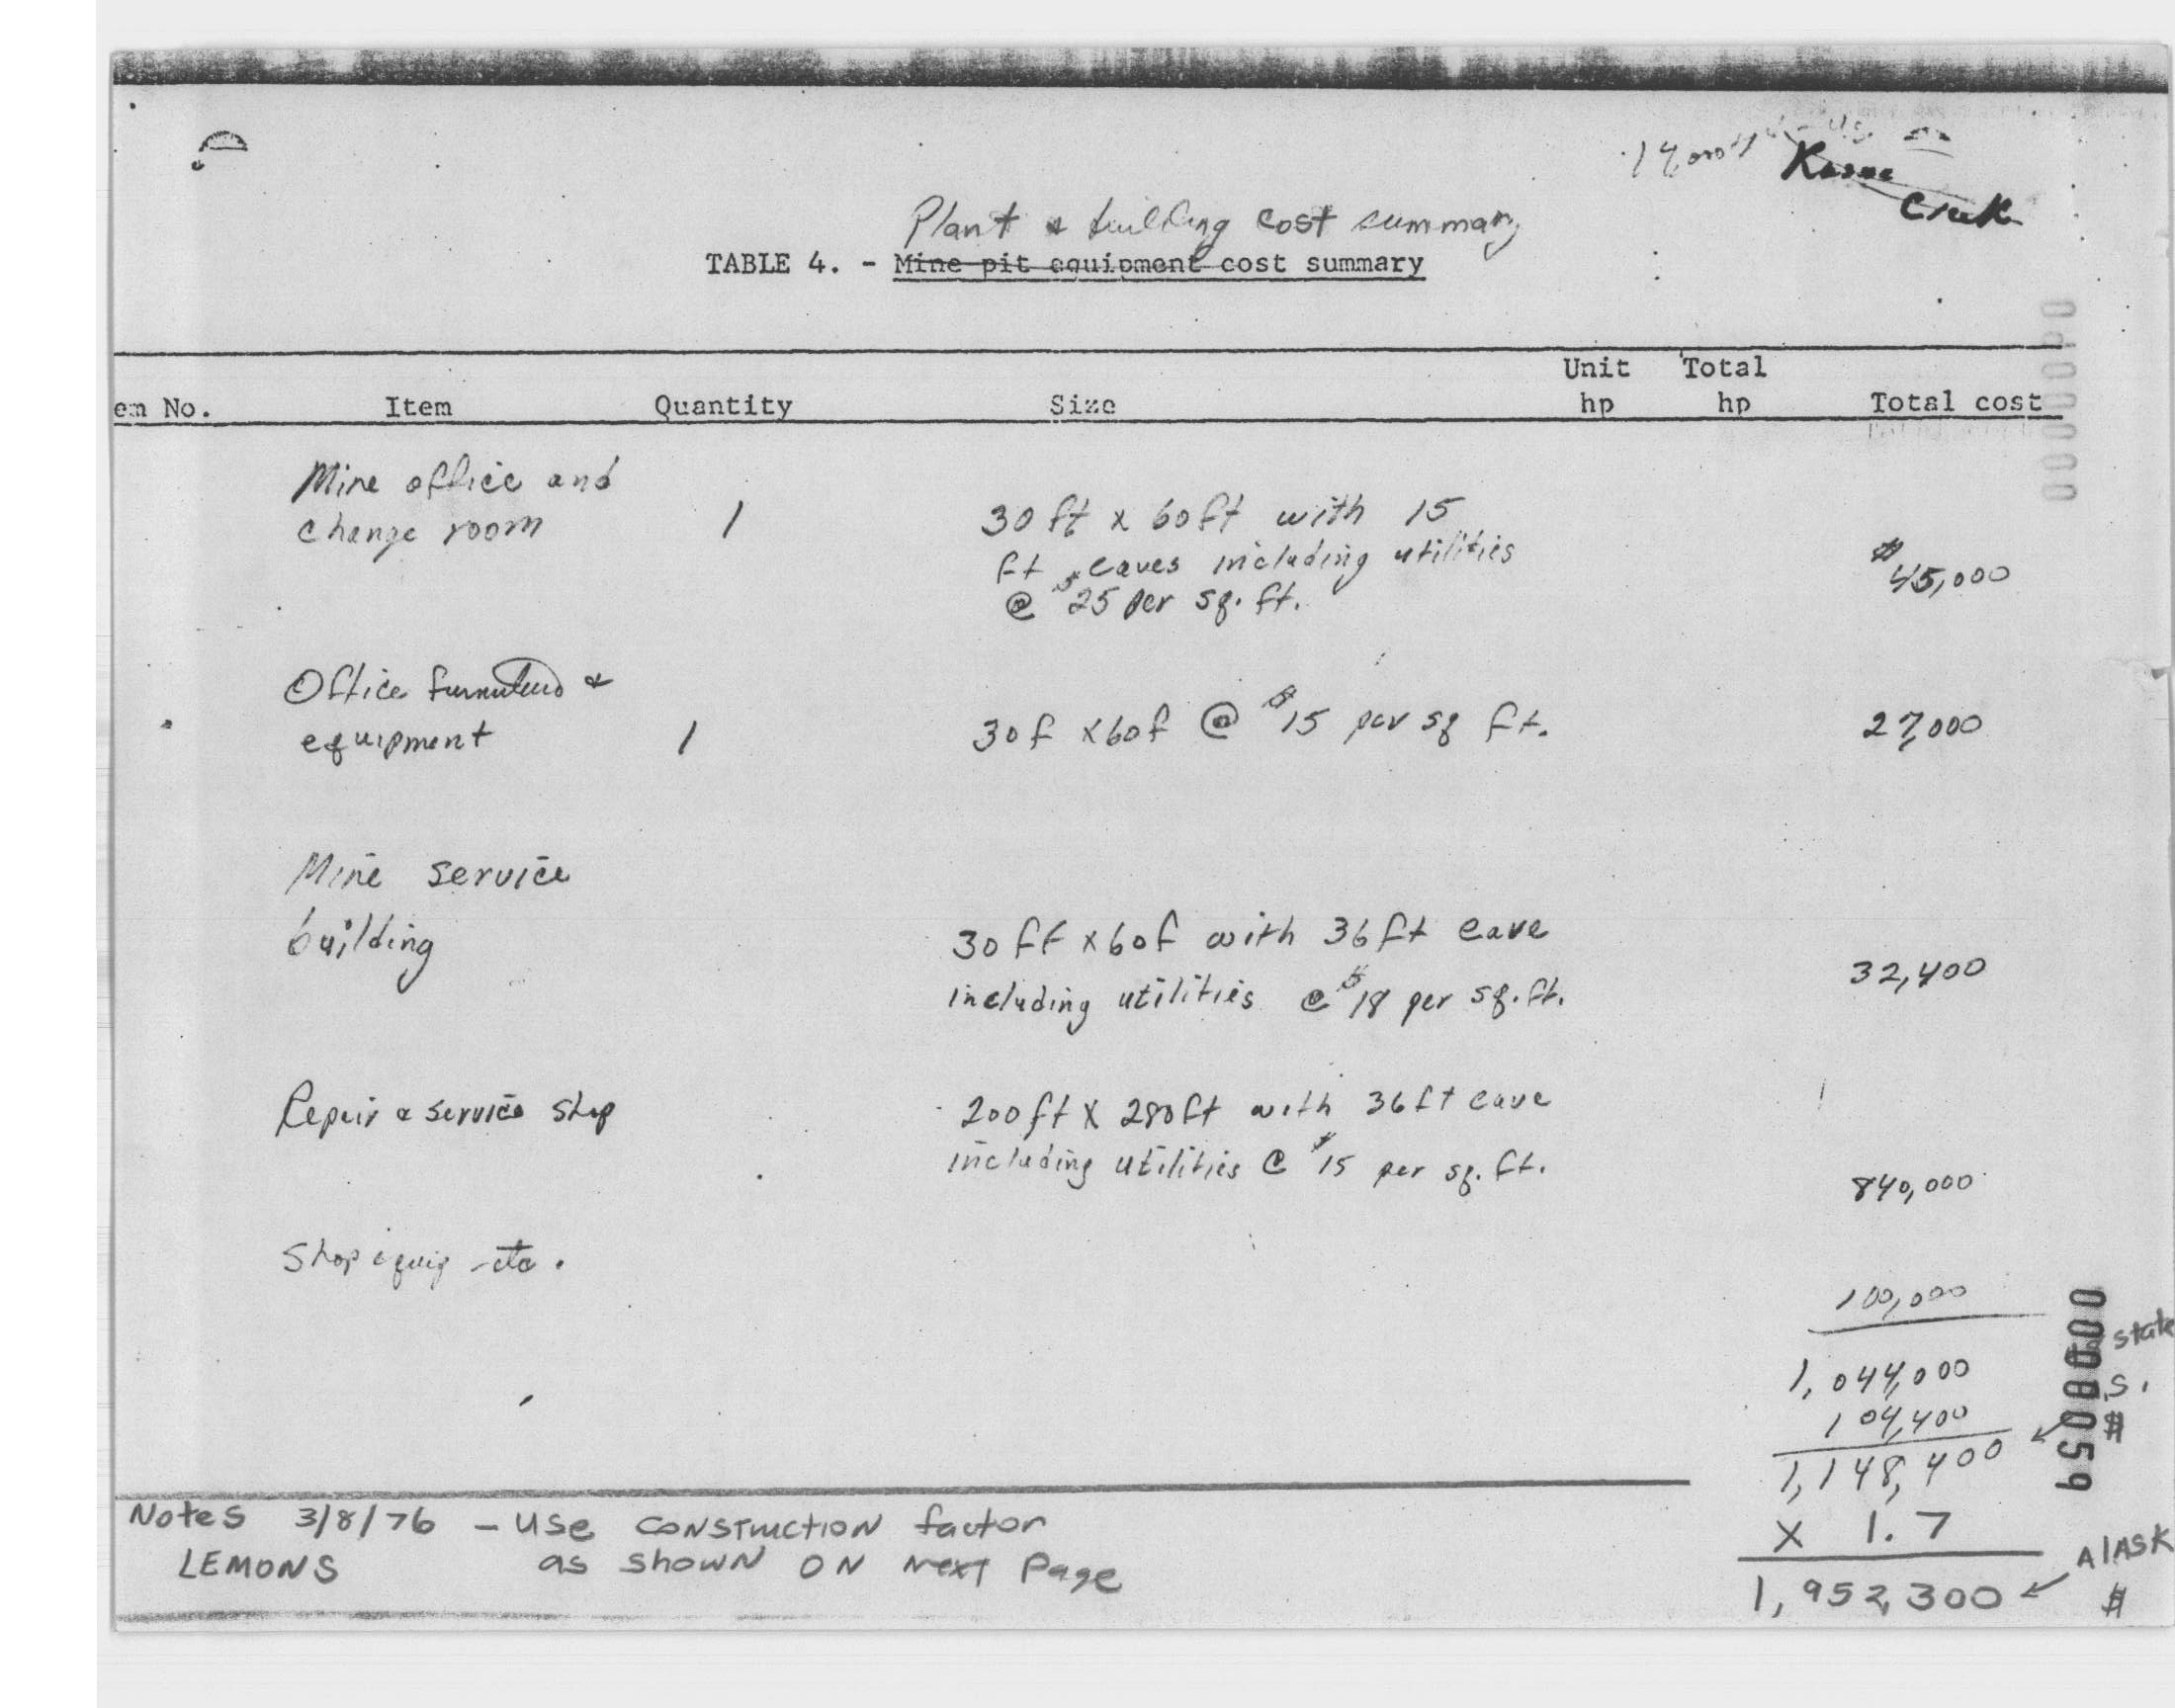 Creek
Plant & building cost summary
TABLE 4. - Mine pit equipment cost summary
Unit Total
em No. Item Quantity Size hp hp Total cost
Mine office and
change room 1 30 ft x 60 ft with 15
ft eaves including utilities
@ $25 per sq. ft. $45,000
Office furniture &
equipment 1 30 f x 60 f @ $15 per sq ft. 27,000
Mine service
building 30 ft x 60 f with 36 ft eave
including utilities @ $18 per sq. ft. 32,400
Repair & service shop 200 ft x 280 ft with 36 ft eave
including utilities @ $15 per sq. ft. 840,000
Shop equip etc.
100,000
state
1,044,000 S.
104,400 $
1,148,400
000059
x 1.7
1,952,300 Alask
$
Notes 3/8/76 - Use construction factor
LEMONS as shown on next page